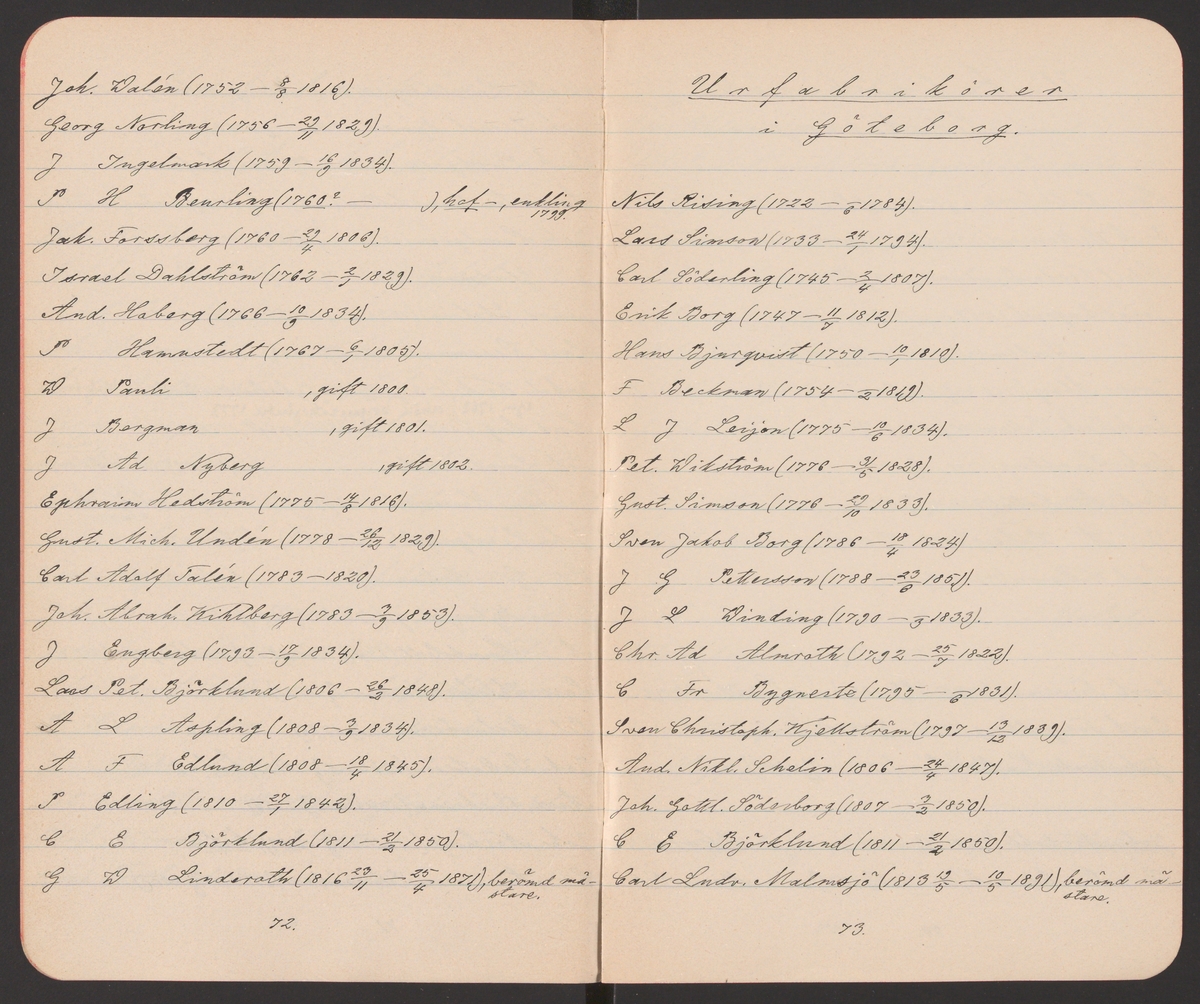 Joh. Walén (1752 – 8/8 1816).
Georg Norling (1756 – 29/11 1829).
J Ingelmark (1759 – 16/9 1834).
P H Beurling (1760? – ), hof –, enkling
1799.
Jak. Forssberg (1760 – 29/4 1806).
Israel Dahlström (1762 – 2/7 1829).
And. Hoberg (1766 – 10/9 1834).
P Hamnstedt (1767 – 6/1 1805).
W Pauli , gift 1800.
J Bergman , gift 1801.
J Ad Nyberg , gift 1802.
Ephraim Hedström (1775 – 14/8 1816).
Gust. Mich. Undén (1778 – 26/12 1829).
Carl Adolf Talén (1783 – 1820).
Joh. Abrah. Kihlberg (1783 – 3/9 1853).
J Engberg (1793 – 17/9 1834).
Lars Pet. Björklund (1806 – 26/2 1848).
A L Aspling (1808 – 3/9 1834).
A F Edlund (1808 – 18/4 1845).
P Edling (1810 – 27/7 1842).
C E Björklund (1811 – 21/2 1850).
G W Linderoth (1816 23/11 – 25/4 1871), berömd mä-
stare.
72.
Urfabrikörer
i Göteborg.
Nils Rising (1722 – /6 1784).
Lars Simson (1733 – 24/1 1794).
Carl Söderling (1745 – 2/4 1807).
Erik Borg (1747 – 11/7 1812).
Hans Bjurqvist (1750 – 10/1 1810).
F Beckman (1754 – /2 1819).
L J Leijon (1775 – 10/6 1834).
Pet. Wikström (1776 – 31/5 1828).
Gust. Simson (1776 – 29/10 1833).
Sven Jakob Borg (1786 – 18/4 1824)
J G Pettersson (1788 – 23/6 1851).
J L Winding (1790 – /5 1833).
Chr. Ad Almroth (1792 – 25/7 1822).
C Fr Bygneste (1795 – /6 1831).
Sven Christoph. Kjellström (1797 – 13/12 1839).
And. Nikl. Schelin (1806 – 24/4 1847).
Joh. Gottl. Söderborg (1807 – 3/2 1850).
C E Björklund (1811 – 21/2 1850).
Carl Ludv. Malmsjö (1813 19/5 – 10/5 1891), berömd mä-
stare.
73.